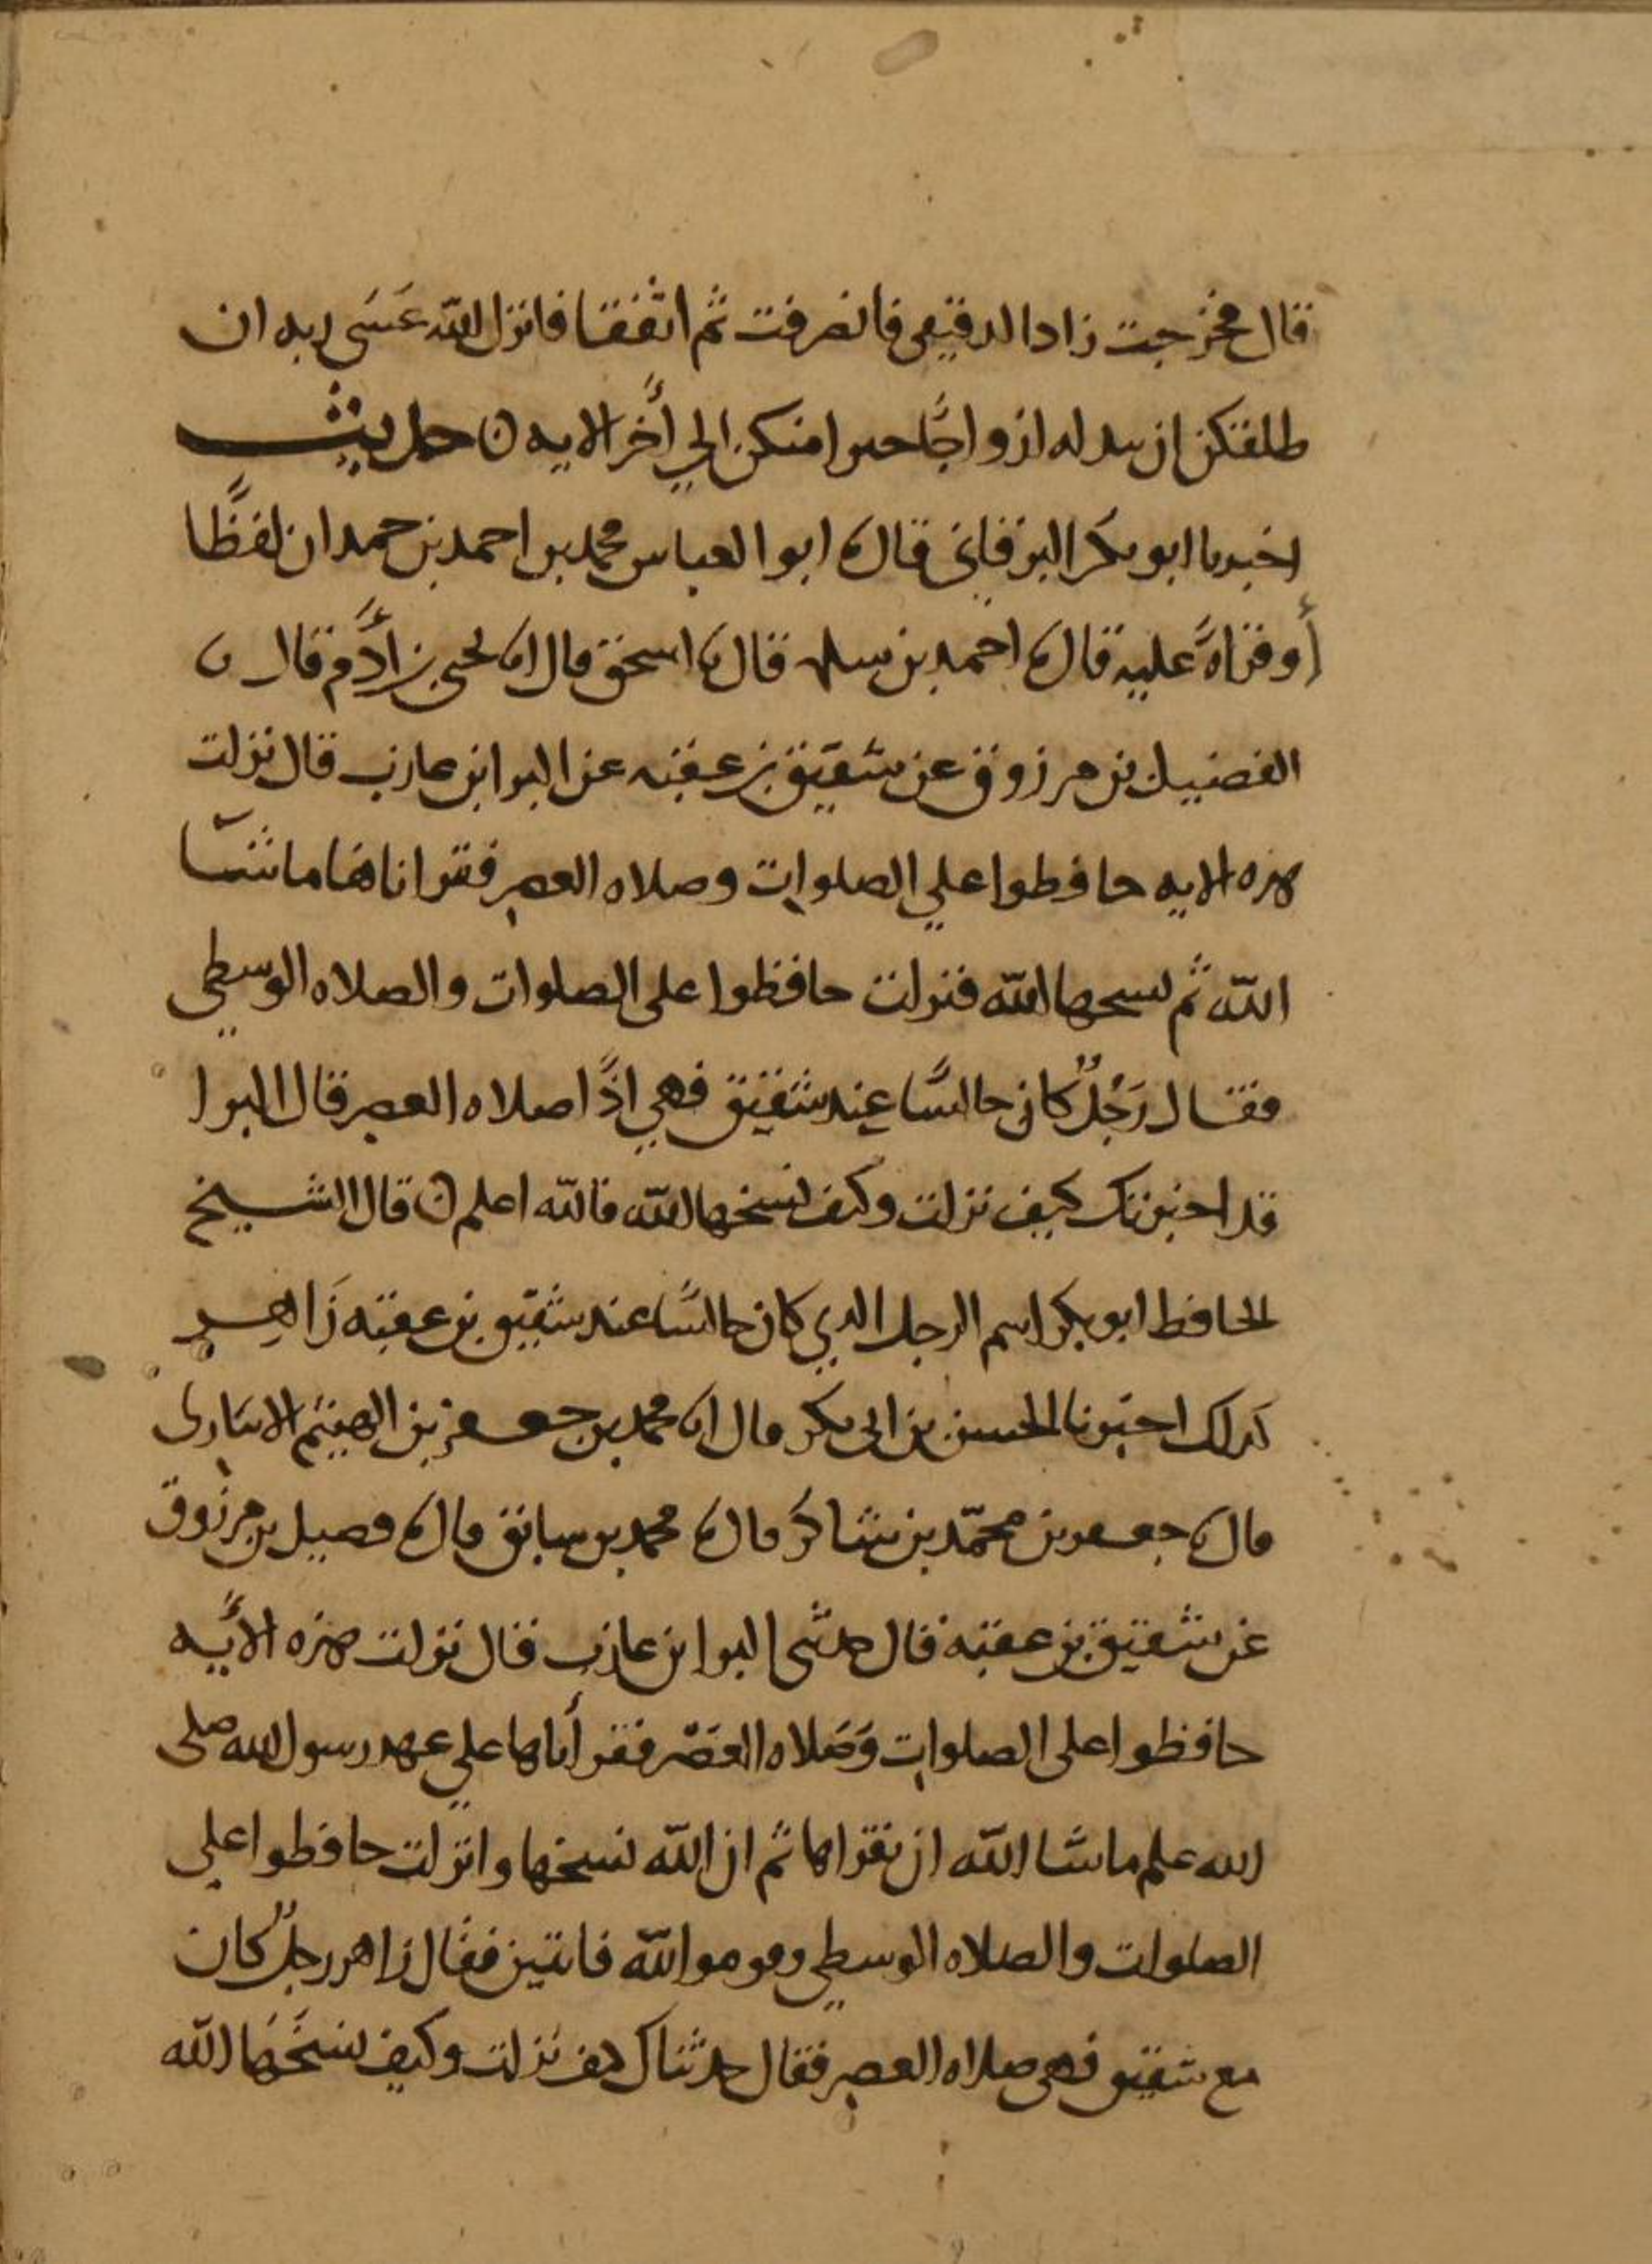 قال فخرجت زاد الدقيقي فانصرفت ثم اتفقا فانزل الله عَسَى ربه ان
طلقكن ان يبدله ازواجًا خيرا منكن إلي أخر الايه ن حديث
اخبرنا ابو بكر البرقاني قال نا ابو العباس محمد بن احمد بن حمدان لفظًا
أو قراةً عليه قال نا احمد بن سلمه قال نا اسحق قال انا يحيى بن أدم قال نا
الفضيل بن مرزوق عن شقيق بن عقبه عن البرا بن عازب قال نزلت
هذه الايه حافظوا علي الصلوات وصلاه العصر فقراناها ما شآ
الله ثم نسخها الله فنزلت حافظوا على الصلوات والصلاه الوسطي
فقال رَجُلٌ كان جالسًا عند شقيق فهي اذًا صلاه العصر قال البرا
قد اخبرتك كيف نزلت وكيف نسخها الله فالله اعلم ن قال الشيخ
الحافظ ابو بكر اسم الرجل الذي كان جالسًا عند شقيق بن عقبه زَاهِر
كذلك اخبرنا الحسن بن ابى بكر قال انا محمد بن جعفر بن الهيثم الانبارى
قال نا جعفر بن محمّد بن شاكر قال نا محمد بن سابق قال نا فضيل بن مرزوق
عن شقيق بن عقبه قال حدثنى البرا بن عازب قال نزلت هذه الأيه
حافظوا على الصلوات وَصَلاه العَصْر فقرأناها علي عهد رسول الله صلى
الله عليه ما شا الله ان نقراها ثم ان الله نسخها وانزلت حافظوا على
الصلوات والصلاه الوسطي وقوموا لله قانتين فقال زاهر رجلٌ كان
مع شقيق فهى صلاه العصر فقال حدثتك كيف نزلت وكيف نسَخَهَا الله